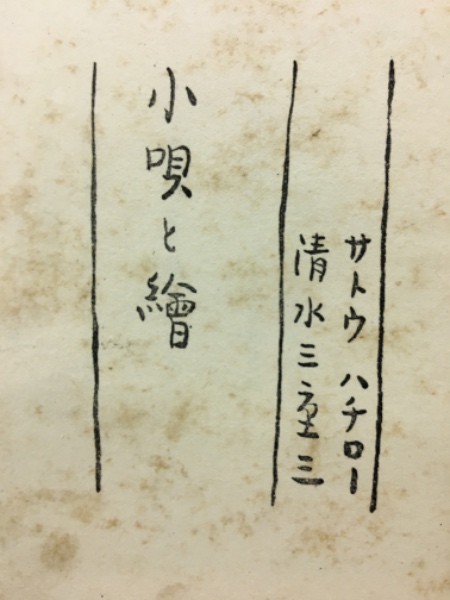 サトウ ハチロー
清水三重三
小唄と繪